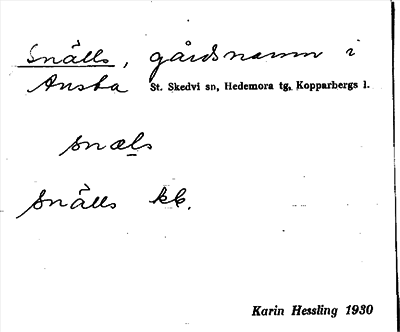 Snälls, gårdsnamn i
Ansta St. Skedvi sn, Hedemora tg, Kopparbergs l.
snæls
Snälls kb.
Karin Hessling 1930